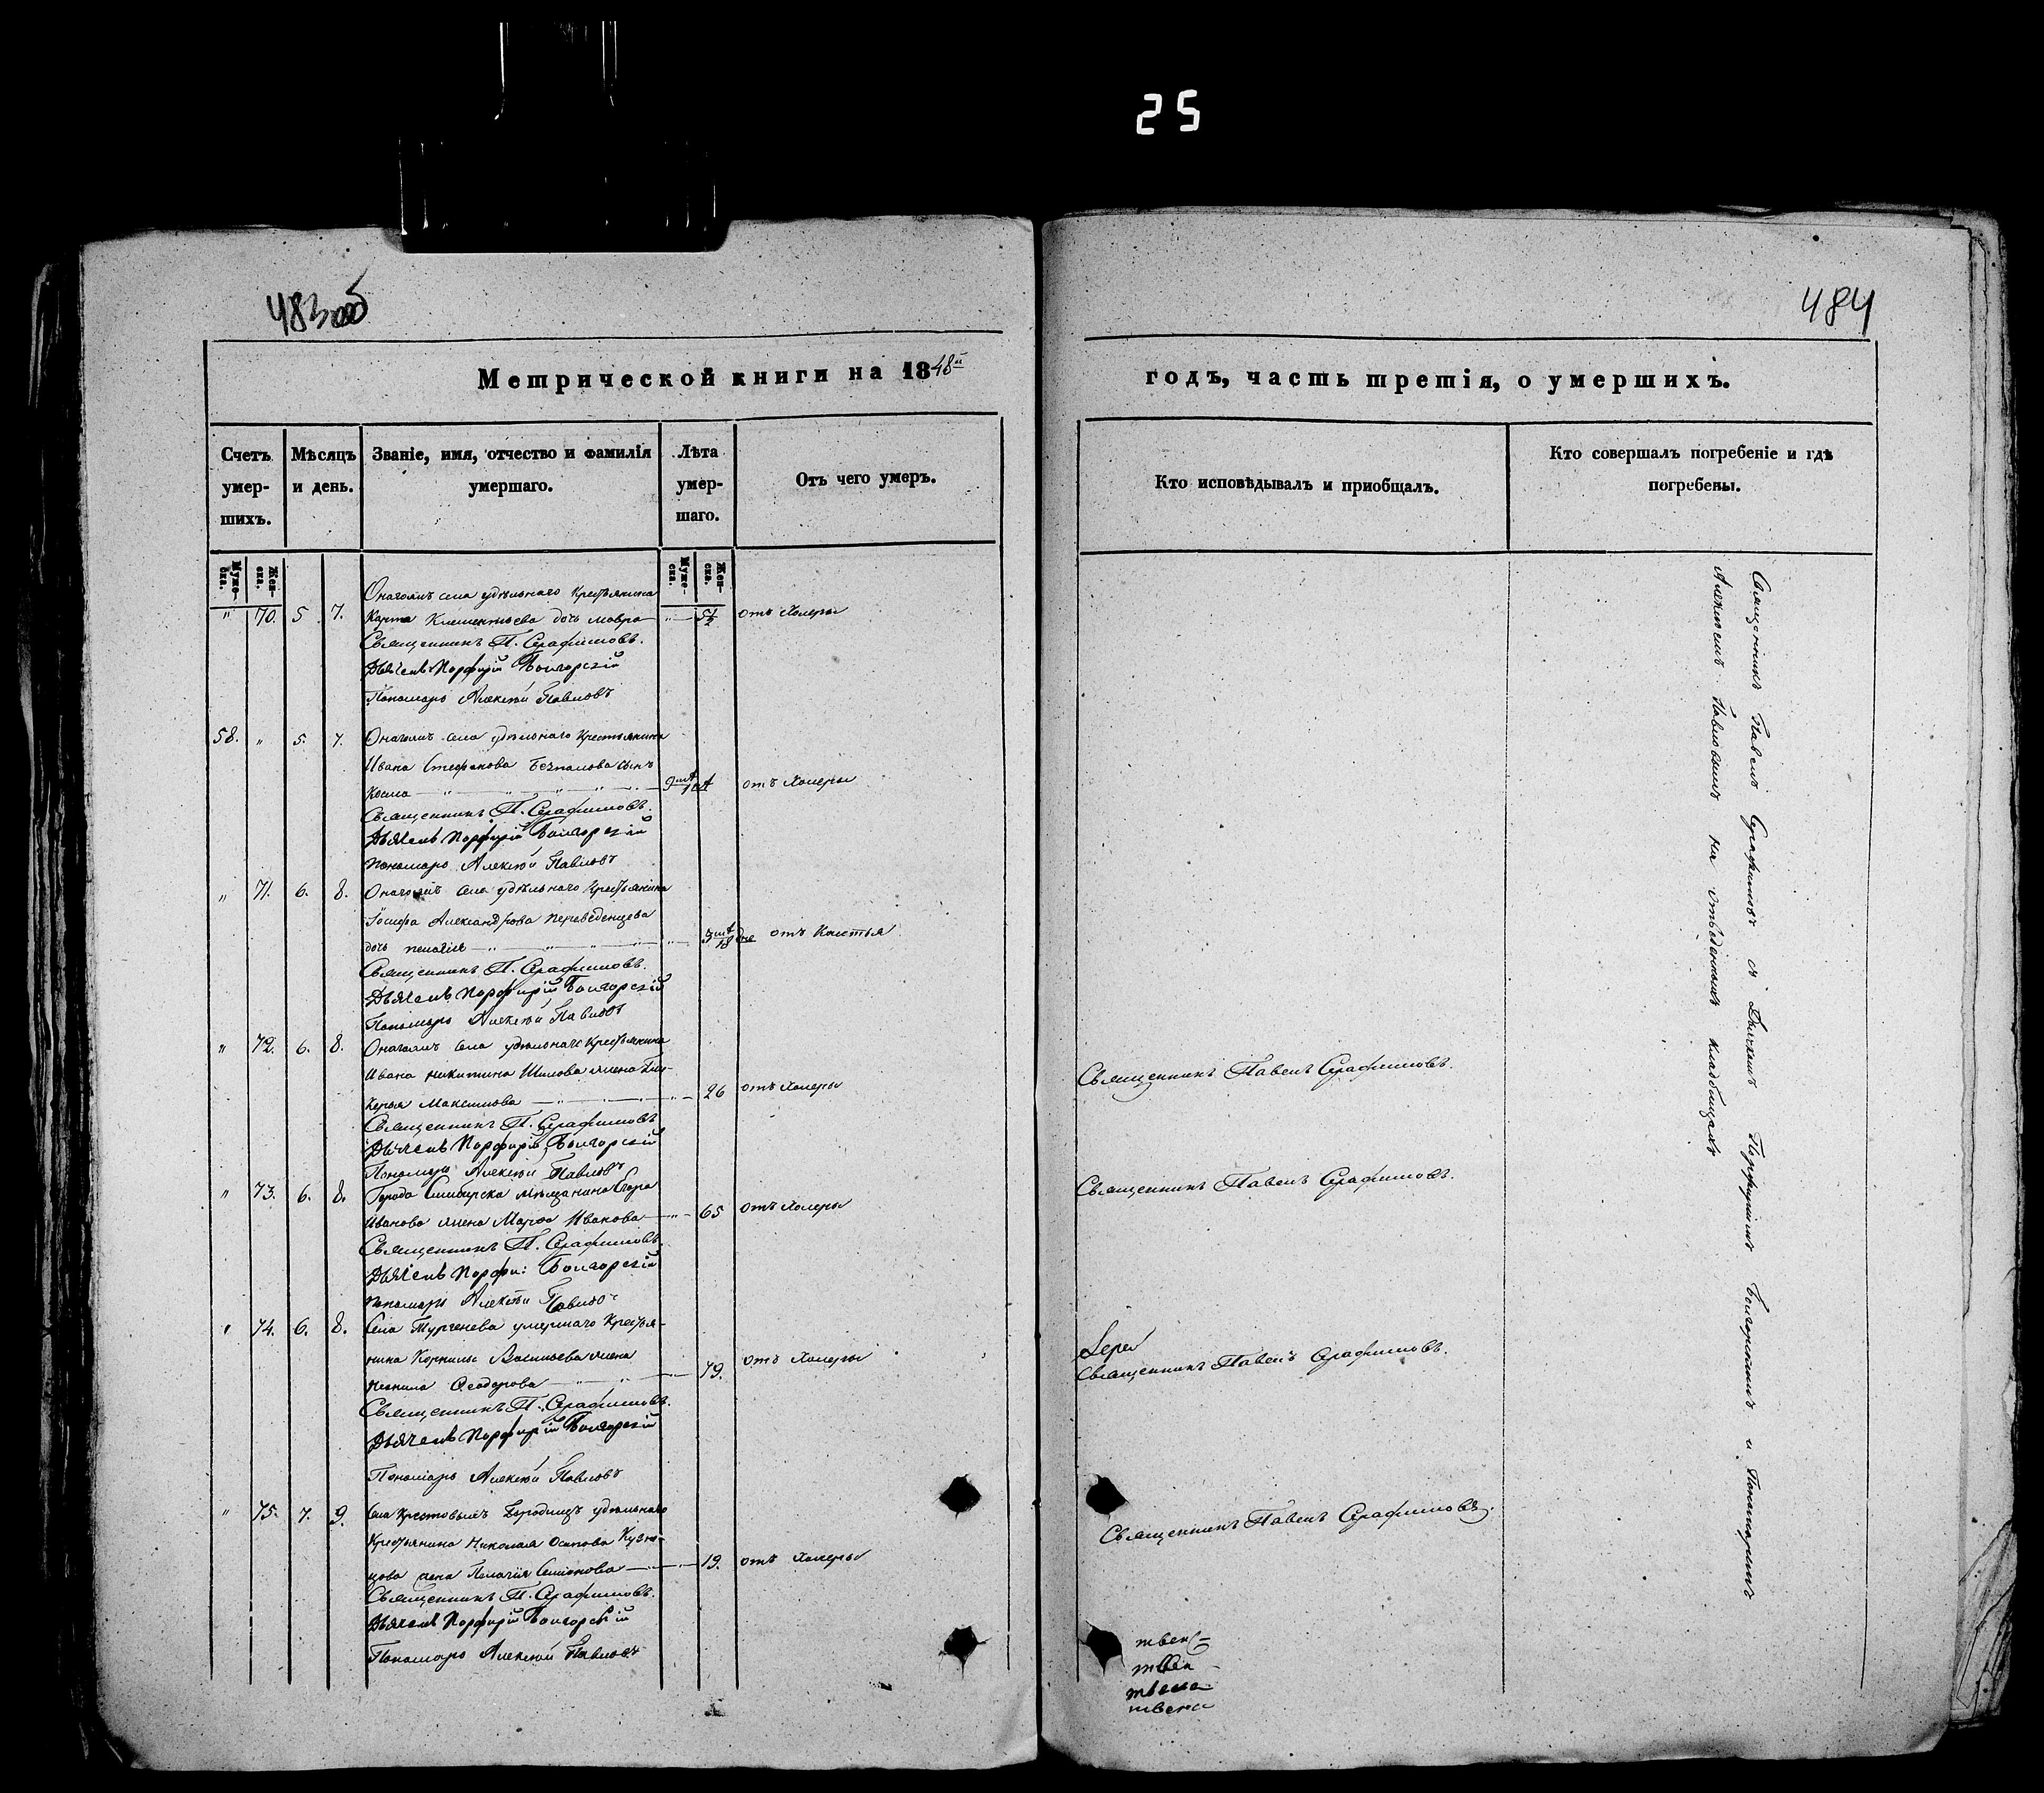 25
483об
484
Метрической книги на 1848й
годъ, часть третія, о умершихъ.
Счетъ умер-шихъ.
Мѣсяцъ и день.
Званіе, имя, отчество и фамилія умершаго.
Лѣта умер-шаго.
Отъ чего умеръ.
Кто исповѣдывалъ и приобщалъ.
Кто совершалъ погребеніе и гдѣ погребены.
Муже-ска.
Жен-ска.
Муже-ска.
Жен-ска.
села удѣльнаго крестьянина
" 70. 5 7. Карпа Климентьева дочь Мавра " 5½ отъ холеры
Священникъ П. Серафимовъ.
Дьячекъ Порфирій
Пономарь Алексѣй Павловъ
58. " 5. 7. села удѣльнаго крестьянина
Ивана Стефанова сынъ
Козма отъ холеры
Священникъ П. Серафимовъ.
Дьячекъ Порфирій
Пономарь Алексѣй Павловъ
" 71. 6. 8. села удѣльнаго крестьянина
Іосифа Александрова Переведенцева
дочь отъ
Священникъ П. Серафимовъ.
Дьячекъ Порфирій
Пономарь Алексѣй Павловъ
" 72. 6. 8. села удѣльнаго крестьянина
Ивана Никитина Шилова жена
Максимова 26 отъ холеры
Священникъ Павелъ Серафимовъ.
Священникъ П. Серафимовъ
Дьячекъ Порфирій
Пономарь Алексѣй Павловъ
" 73. 6. 8. Города Симбирска мѣщанина Егора
Иванова жена Марфа Иванова " 65 отъ холеры
Священникъ Павелъ Серафимовъ.
Священникъ П. Серафимовъ
Дьячекъ Порфи:
Пономарь Алексѣй Павловъ
" 74. 6. 8. Села Тургенева умершаго крестья-
нина Корнилы Васильева жена
Неонила Ѳеодорова 79. отъ холеры
Священникъ Павелъ Серафимовъ.
Священникъ П. Серафимовъ.
Дьячекъ Порфирій
Пономарь Алексѣй Павловъ
" 75. 7. 9. Села Крестовыхъ Городищъ удѣльнаго
крестьянина Николая Осипова Кузне-
цова жена Пелагія Семіонова 19. отъ холеры
Священникъ Павелъ Серафимовъ.
Священникъ П. Серафимовъ.
Дьячекъ Порфирій
Пономарь Алексѣй Павловъ
Священникъ Павелъ Серафимовъ съ Дьячкомъ Порфиріемъ и Пономаремъ
Алексѣемъ Павловымъ на отведенномъ кладбищѣ